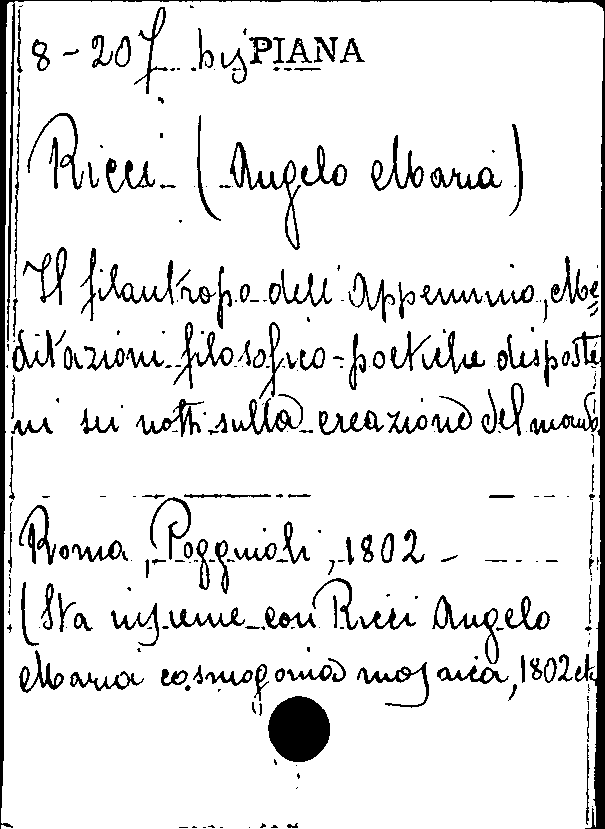 8-20 f bis PIANA
Ricci (Angelo Maria)
Il filantropo dell'Appennino, Me=
ditazioni filosofico-poetiche disposte
in sei notti sulla creazione del mondo
Roma, Poggioli, 1802 -
(Sta insieme con Ricci Angelo
Maria cosmogonia mosaica, 1802 etc